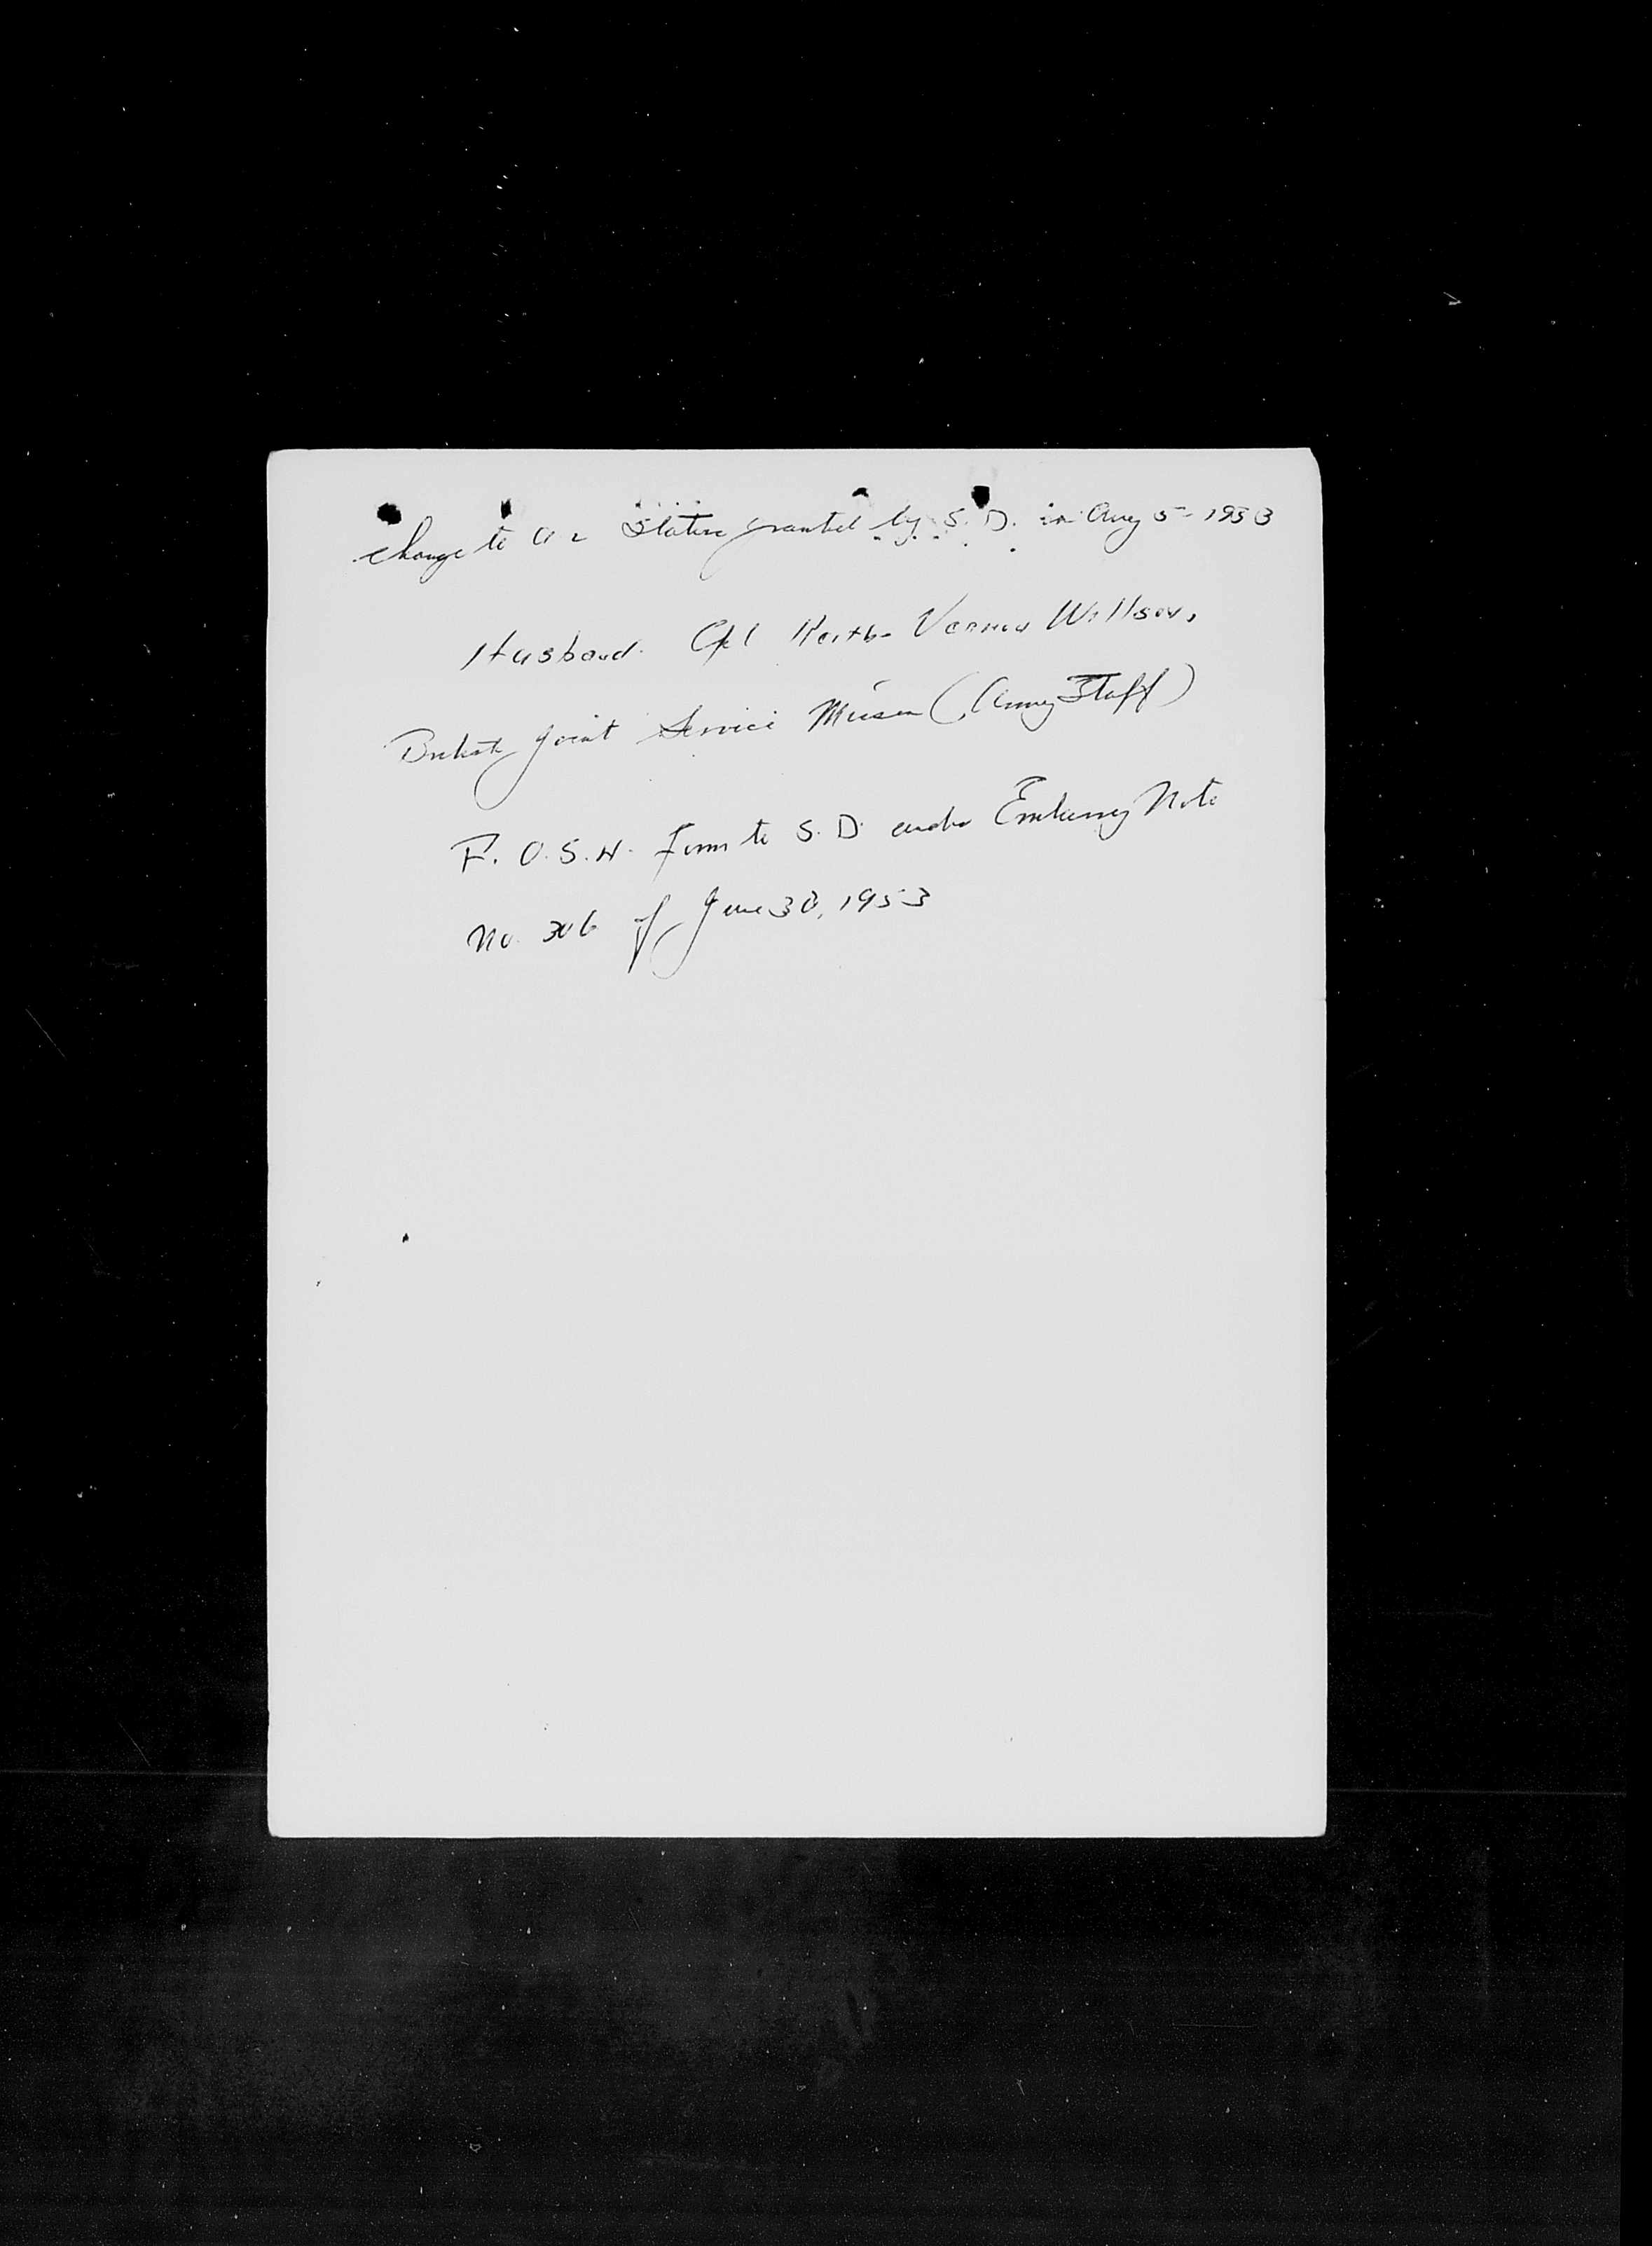 Change to A 2 Status granted by S. D. in Aug 5 - 1953
Husband. Cpl Keith Vernon Willson,
British Joint Service Mission (Army Staff)
F. O. S. N. Form to S. D. under Embassy Note
No. 306 of June 30, 1953